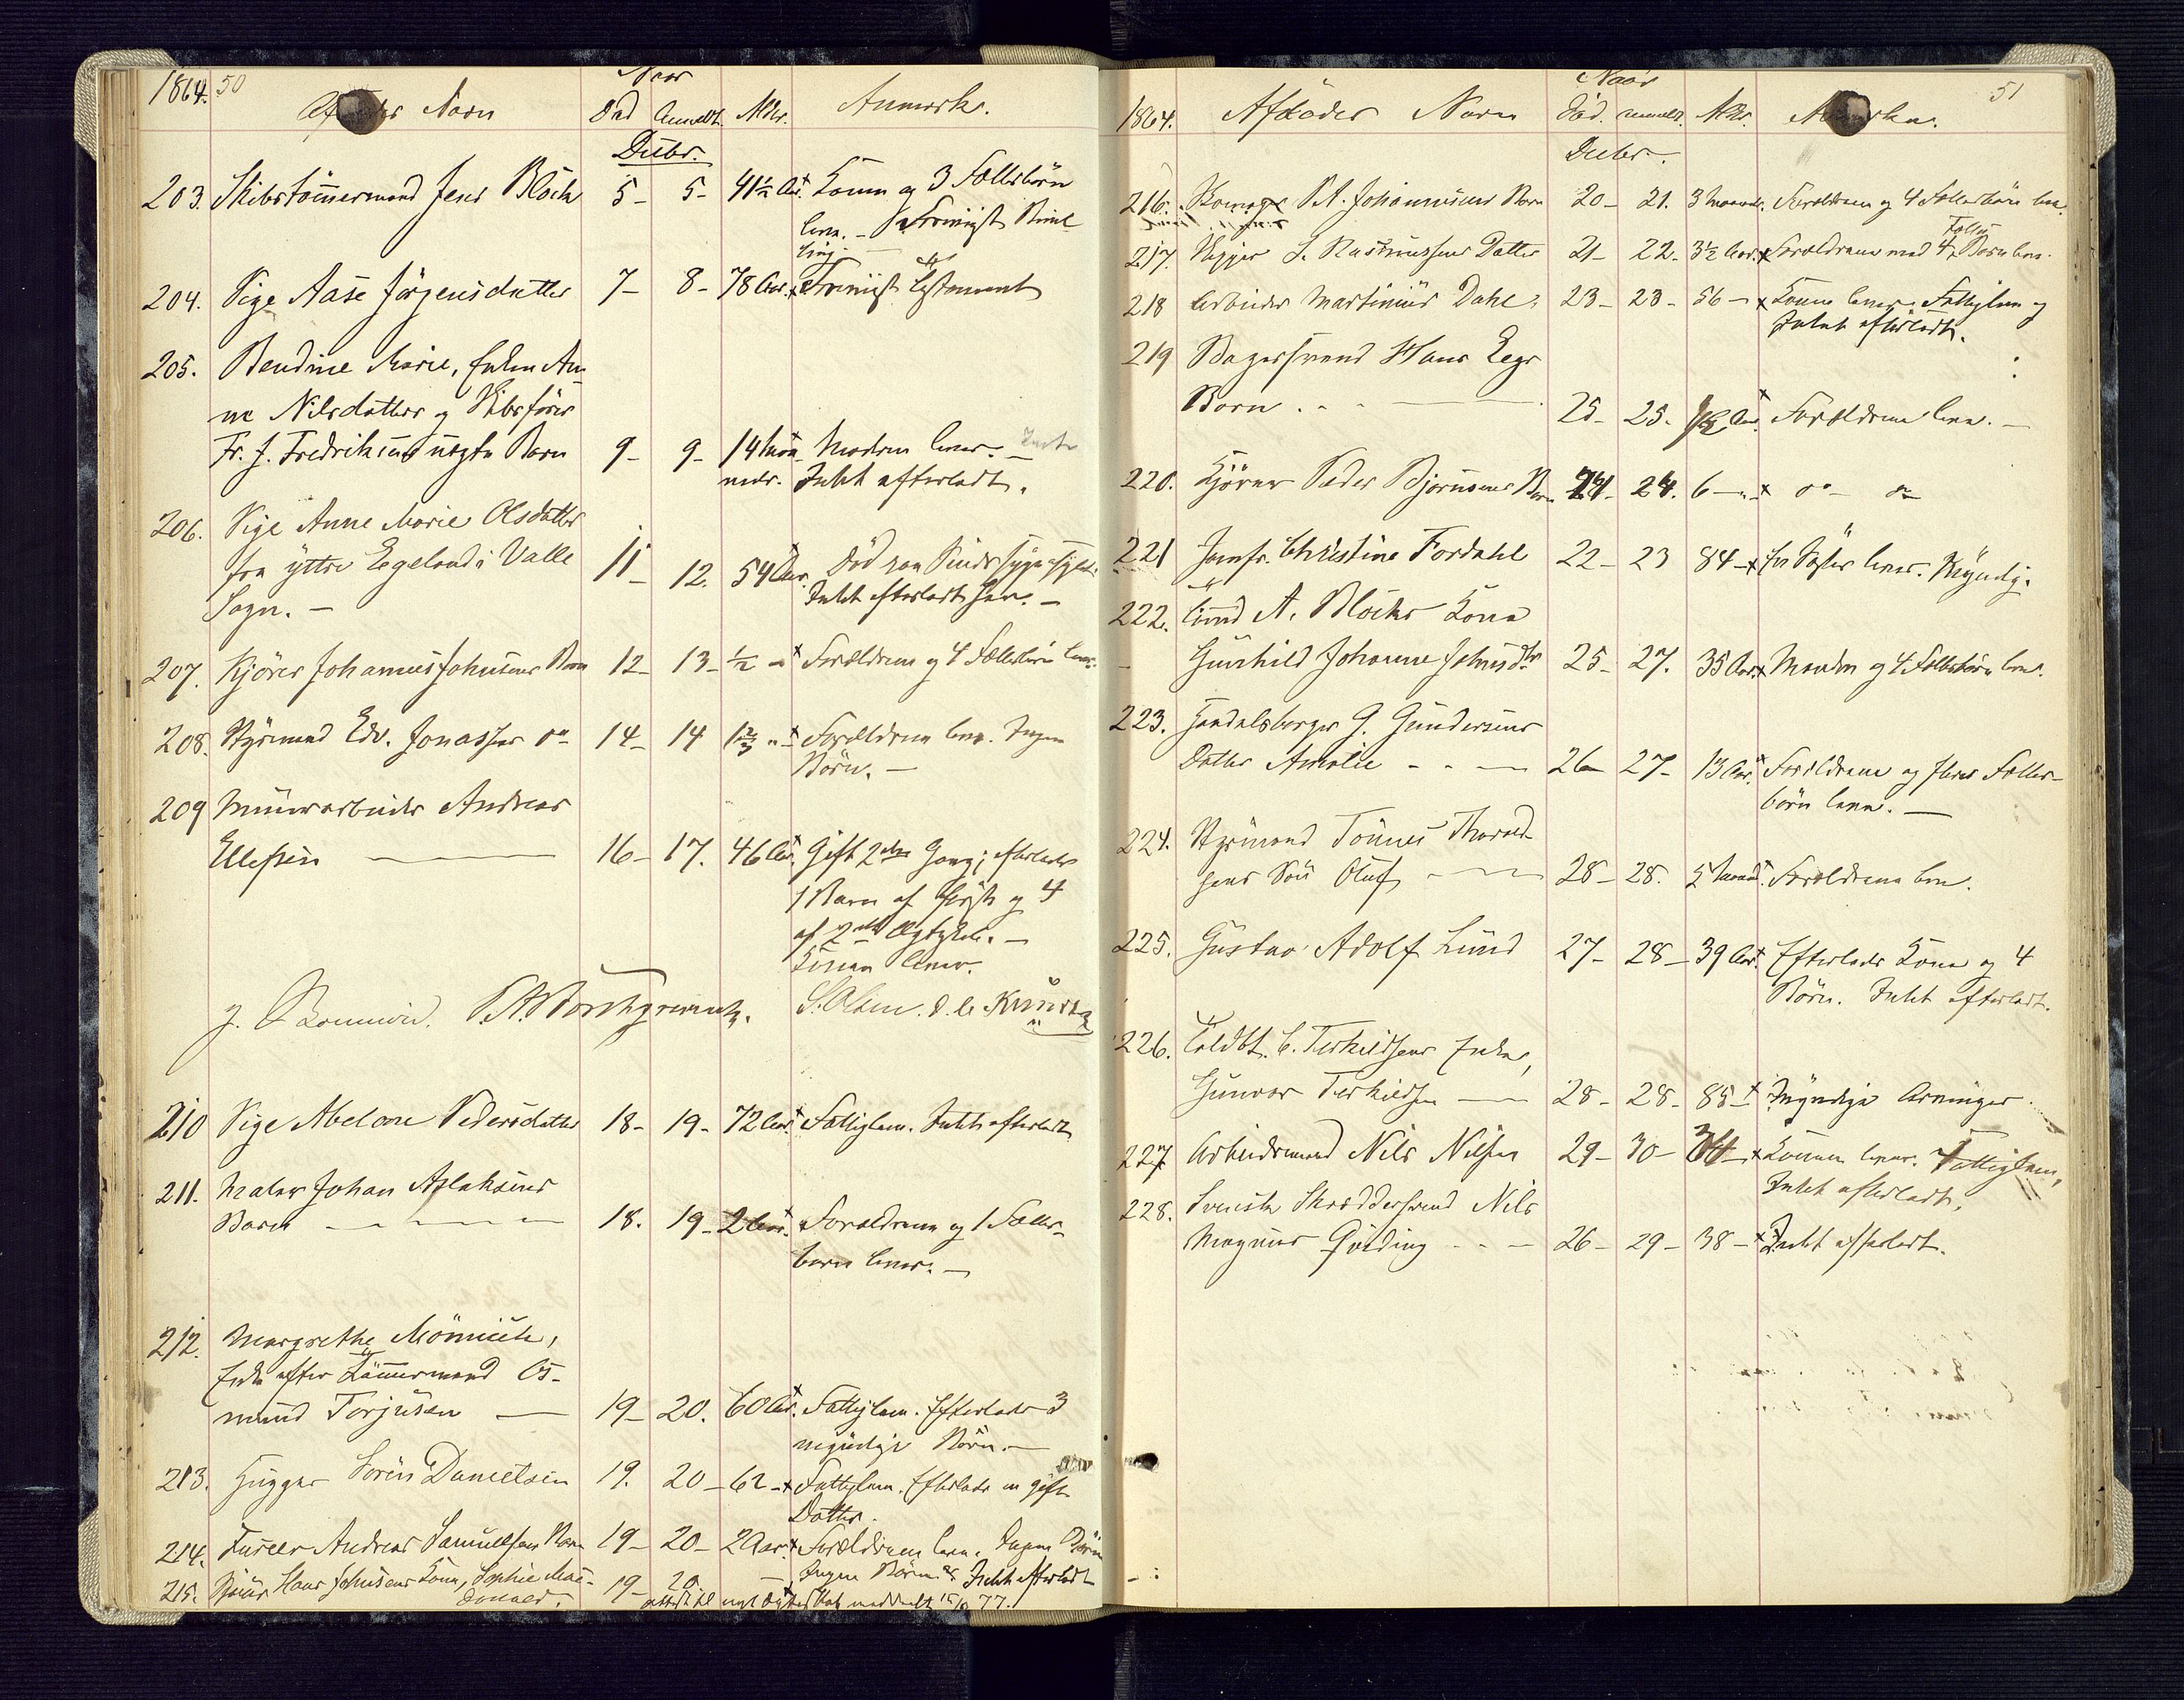 1864. 50
Afdødes Navn
Naar
Død Anmeldt. Alder. Anmærk.
Decbr.
203. Skibstömmermand Jens Bloch 5- 5- 41½ Aar. Konen og 3 Fællesbörn
leve. -
204. Pige Aase Jörgensdatter 7- 8- 78 Aar. Testament
205. Bendine Marie, Enken An-
ne Nilsdatters og Skibsförer
Fr. J. Fredriksens uægte Barn 9- 9- 14 Maa- Moderen lever. -
neder. Intet efterladt.
206. Pige Anne Marie Olsdatter
fra yttre Egeland i Valle
Sogn. - 11- 12. 54 Aar. Död paa Sindssygeasylet.
Intet efterladt
207. Kjörer Johannes Johnsens Barn 12- 13- ½ - Forældrene og 4 Fællesbörn leve.
208. Styrmand Edv. Jonassens do 14- 14 1⅔ - Forældrene leve. Ingen
Börn. -
209 Muurarbeider Andreas
Ellefsen 16- 17. 46 Aar. Gift 2den Gang; efterlader
1 Barn af förste og 4
af 2det Ægteskab. -
Konen lever.
210 Pige Abelone Pedersdatter 18- 19- 72 Aar. Fattiglem. Intet efterladt
211. Maler Johan Aslaksens
Barn 18. 19- 2 Aar. Forældrene og 1 Fælles-
barn lever. -
212. Margrethe
Enke efter Tömmermand Os-
mund Torjusen 19- 20. 60 Aar. Fattiglem. Efterlader 3
myndige Börn. -
213. Hugger Sören Danielsen 19. 20- 62- Fattiglem. Efterlader en gift
Datter.
214. Andreas Samuelsens Barn 19- 20- 2 Aar. Forældrene leve. Ingen Börn
215. Hans Johnsens Kone, Sophie Mac- 19- 20 - Ingen Börn. Intet efterladt
Donald.
51
1864. Afdödes Navn
Naar
Död. anmeldt. Alder. Anmærkn.
Decbr.
216. A. Johannesens Barn 20- 21. 3 Maaneder. Forældrene og 4 Fællesbörn leve.
217. Hugger S. Rasmussens Datter 21- 22- 3½ Aar. Forældrene med 4 Fælles Börn leve.
218 Arbeider Martinius Dahl 23- 23- 56- Konen lever. Fattiglem og
Intet efterladt.
219 Bagersvend Hans Eegs
Barn 25- 25. Forældrene leve. -
220. Kjörer Peder Björnsens Barn 24- 24. 6 - do do
221 Jomfr. Christine Fordahl 22- 23 84- En Söster lever. Myndig.
222. A. Blochs Kone
Gunhild Johanne Johnsdtr 25- 27. 35 Aar. Manden og 4 Fællesbörn leve.
223. Handelsborger G. Gundersens
Datter Amalie 26 27- 13 Aar. Forældrene og flere Fælles-
börn leve. -
224. Styrmand Tönnes Thorald-
sens Sön Oluf 28- 28. 5 Maaneder. Forældrene leve.
225. Gustav Adolf Lund 27- 28- 39 Aar. Efterlader Kone og 4
Börn. Intet efterladt.
226. Toldbt. C. Terkildsens Enke,
Gunvor Terkildsen 28- 28- 85- Myndige Arvinger.
227. Arbeidsmand Nils Nilsen 29- 30- Konen lever. Fattiglem,
Intet efterladt.
228. Svensk Skræddersvend Nils
Magnus 26- 29- 38- Intet efterladt.